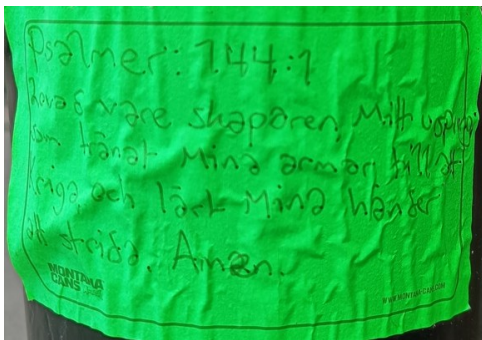 Psalmer: 144:1
Lovad vare skaparen Mitt
som tränat Mina armar till att
kriga och lärt Mina händer
att strida. Amen.
MONTANA
CANS
WWW.MONTANA-CANS.COM